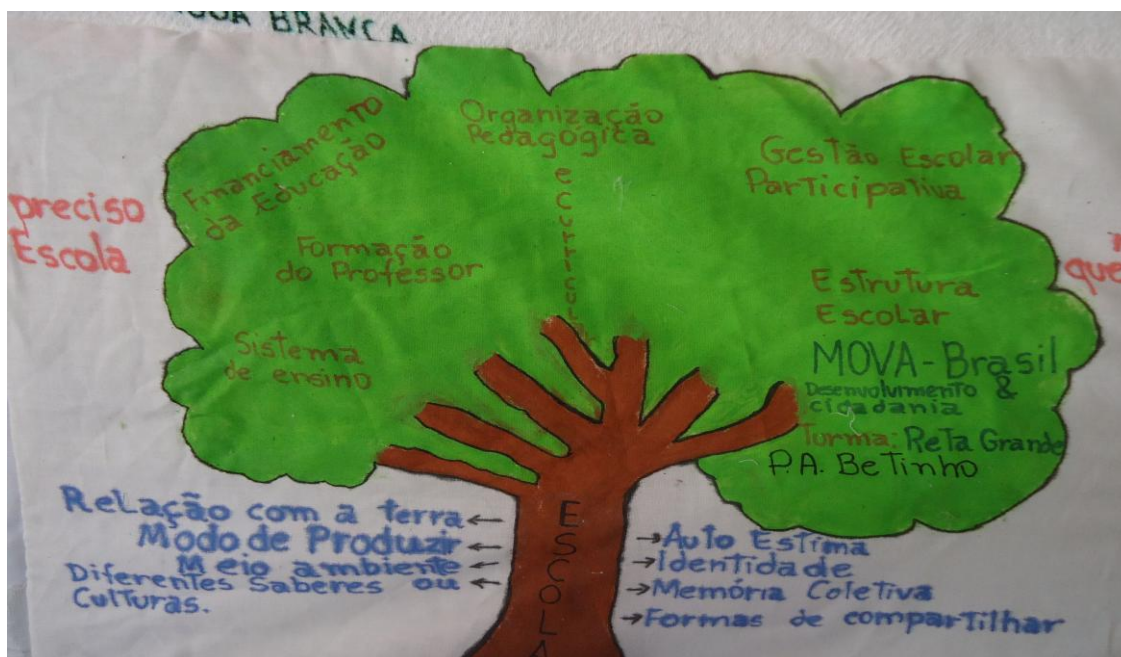 BRANCA
preciso
Escola
que
Financiamento
da Educação
Organização
Pedagógica
e Curricul
Gestão Escolar
Participativa
Formação
do Professor
Sistema
de ensino
Estrutura
Escolar
MOVA-Brasil
Desenvolvimento &
cidadania
Turma: Reta Grande
P.A. Betinho
ESCOLA
Relação com a terra ←
Modo de Produzir ←
Meio ambiente ←
Diferentes Saberes ou ←
Culturas.
→ Auto Estima
→ Identidade
→ Memória Coletiva
→ Formas de compartilhar